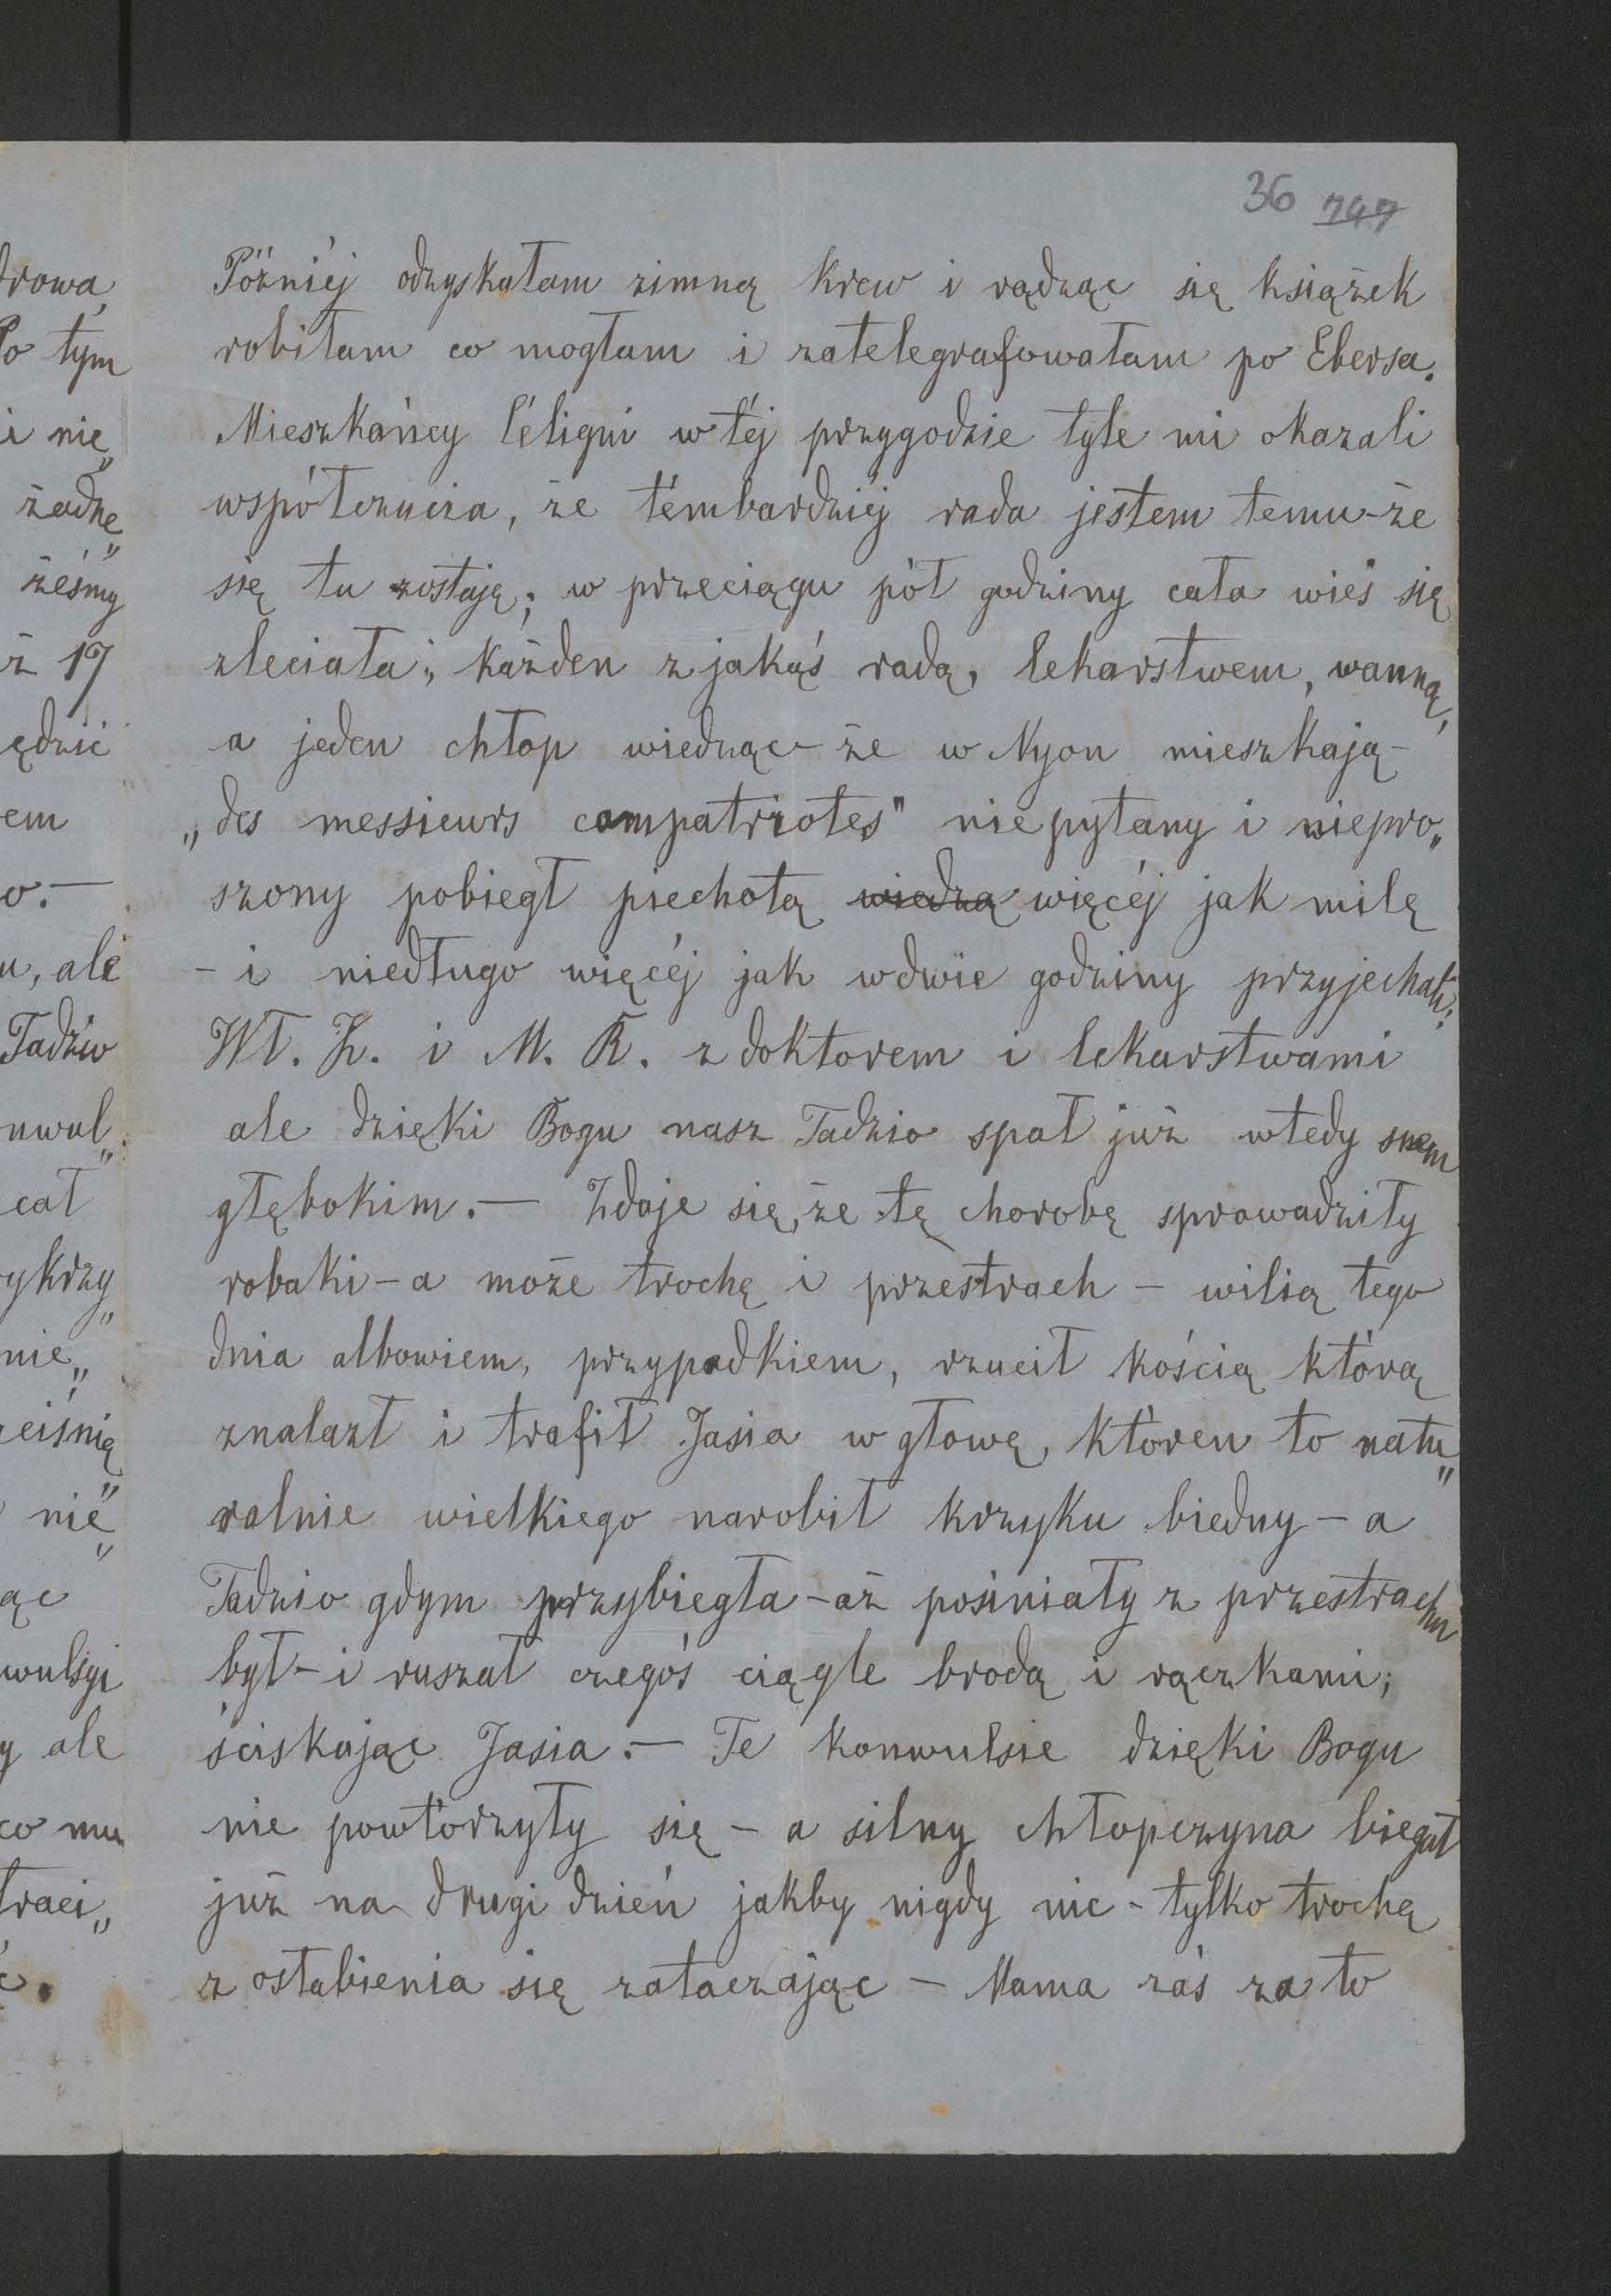 36 747
Późniéj odzyskałam zimną krew i rądząc się książek
robiłam co mogłam i zatelegrafowałam po Ebersa.
Mieszkańcy Céligni w téj przygodzie tyle mi okazali
współczucia, że témbardziéj rada jestem temu-że
się tu zostaję; w przeciągu pół godziny cała wieś się
zleciała; każden z jakąś radą, lekarstwem, wanną,
a jeden chłop wiedząc-że w Nyon mieszkają-
„des messieurs compatriotes" nie pytany i niepro„
szony pobiegł piechotą wiedzą więcéj jak milę
- i niedługo więcéj jak w dwie godziny przyjechali;
Wł. Z. i M. R. z doktorem i lekarstwami
ale dzięki Bogu nasz Tadzio spał już wtedy snem
głębokim.— Zdaje się, że tę chorobę sprowadziły
robaki-a może trochę i przestrach - wilią tego
dnia albowiem, przypadkiem, rzucił kością którą
znalazł i trafił Jasia w głowę, któren to natu„
ralnie wielkiego narobił krzyku biedny-a
Tadzio gdym przybiegła-aż posiniały z przestrachu
był-i ruszał czegoś ciągle brodą i rączkami;
ściskając Jasia.— Te konwulsie dzięki Bogu
nie powtórzyły się - a silny chłopczyna biegał
już na drugi dzień jakby nigdy nic-tylko trochę
z osłabienia się zataczając - Mama zaś za to
drowa,
Po tym
i nie„
żadne„
żeśmy
ż 17
ędzić
em
o.—
u, ale
Tadzio
nwul„
cał
ykrzy„
nie„
eiśnię„
nie„
ąc
wulsyi
y ale
co mu
traci„